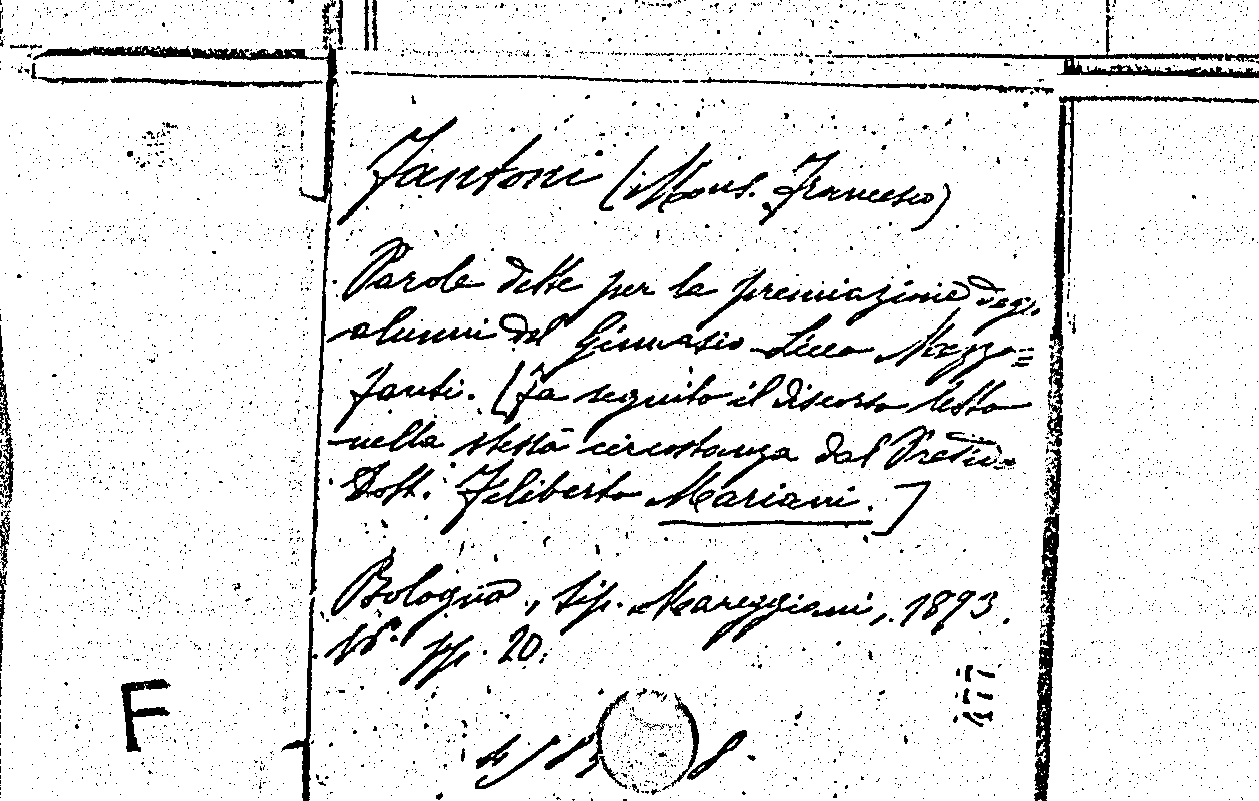 Fantoni (Mons. Francesco)
Parole dette per la premiazione degl.
alunni del Ginnasio Liceo Mezzo=
fanti. [fa seguito il discorso letto
nella stessa circostanza dal
Dott. Filiberto Mariani.]
Bologna, tip. Mareggiani, 1893.
pp. 20.
177
F